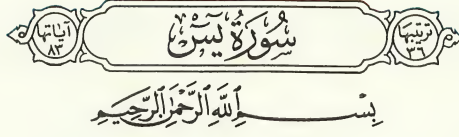 ترتيبها ٣٦ سُورَةُ يسٓ آياتها ٨٣
بِسْمِ اللَّهِ الرَّحْمَٰنِ الرَّحِيمِ